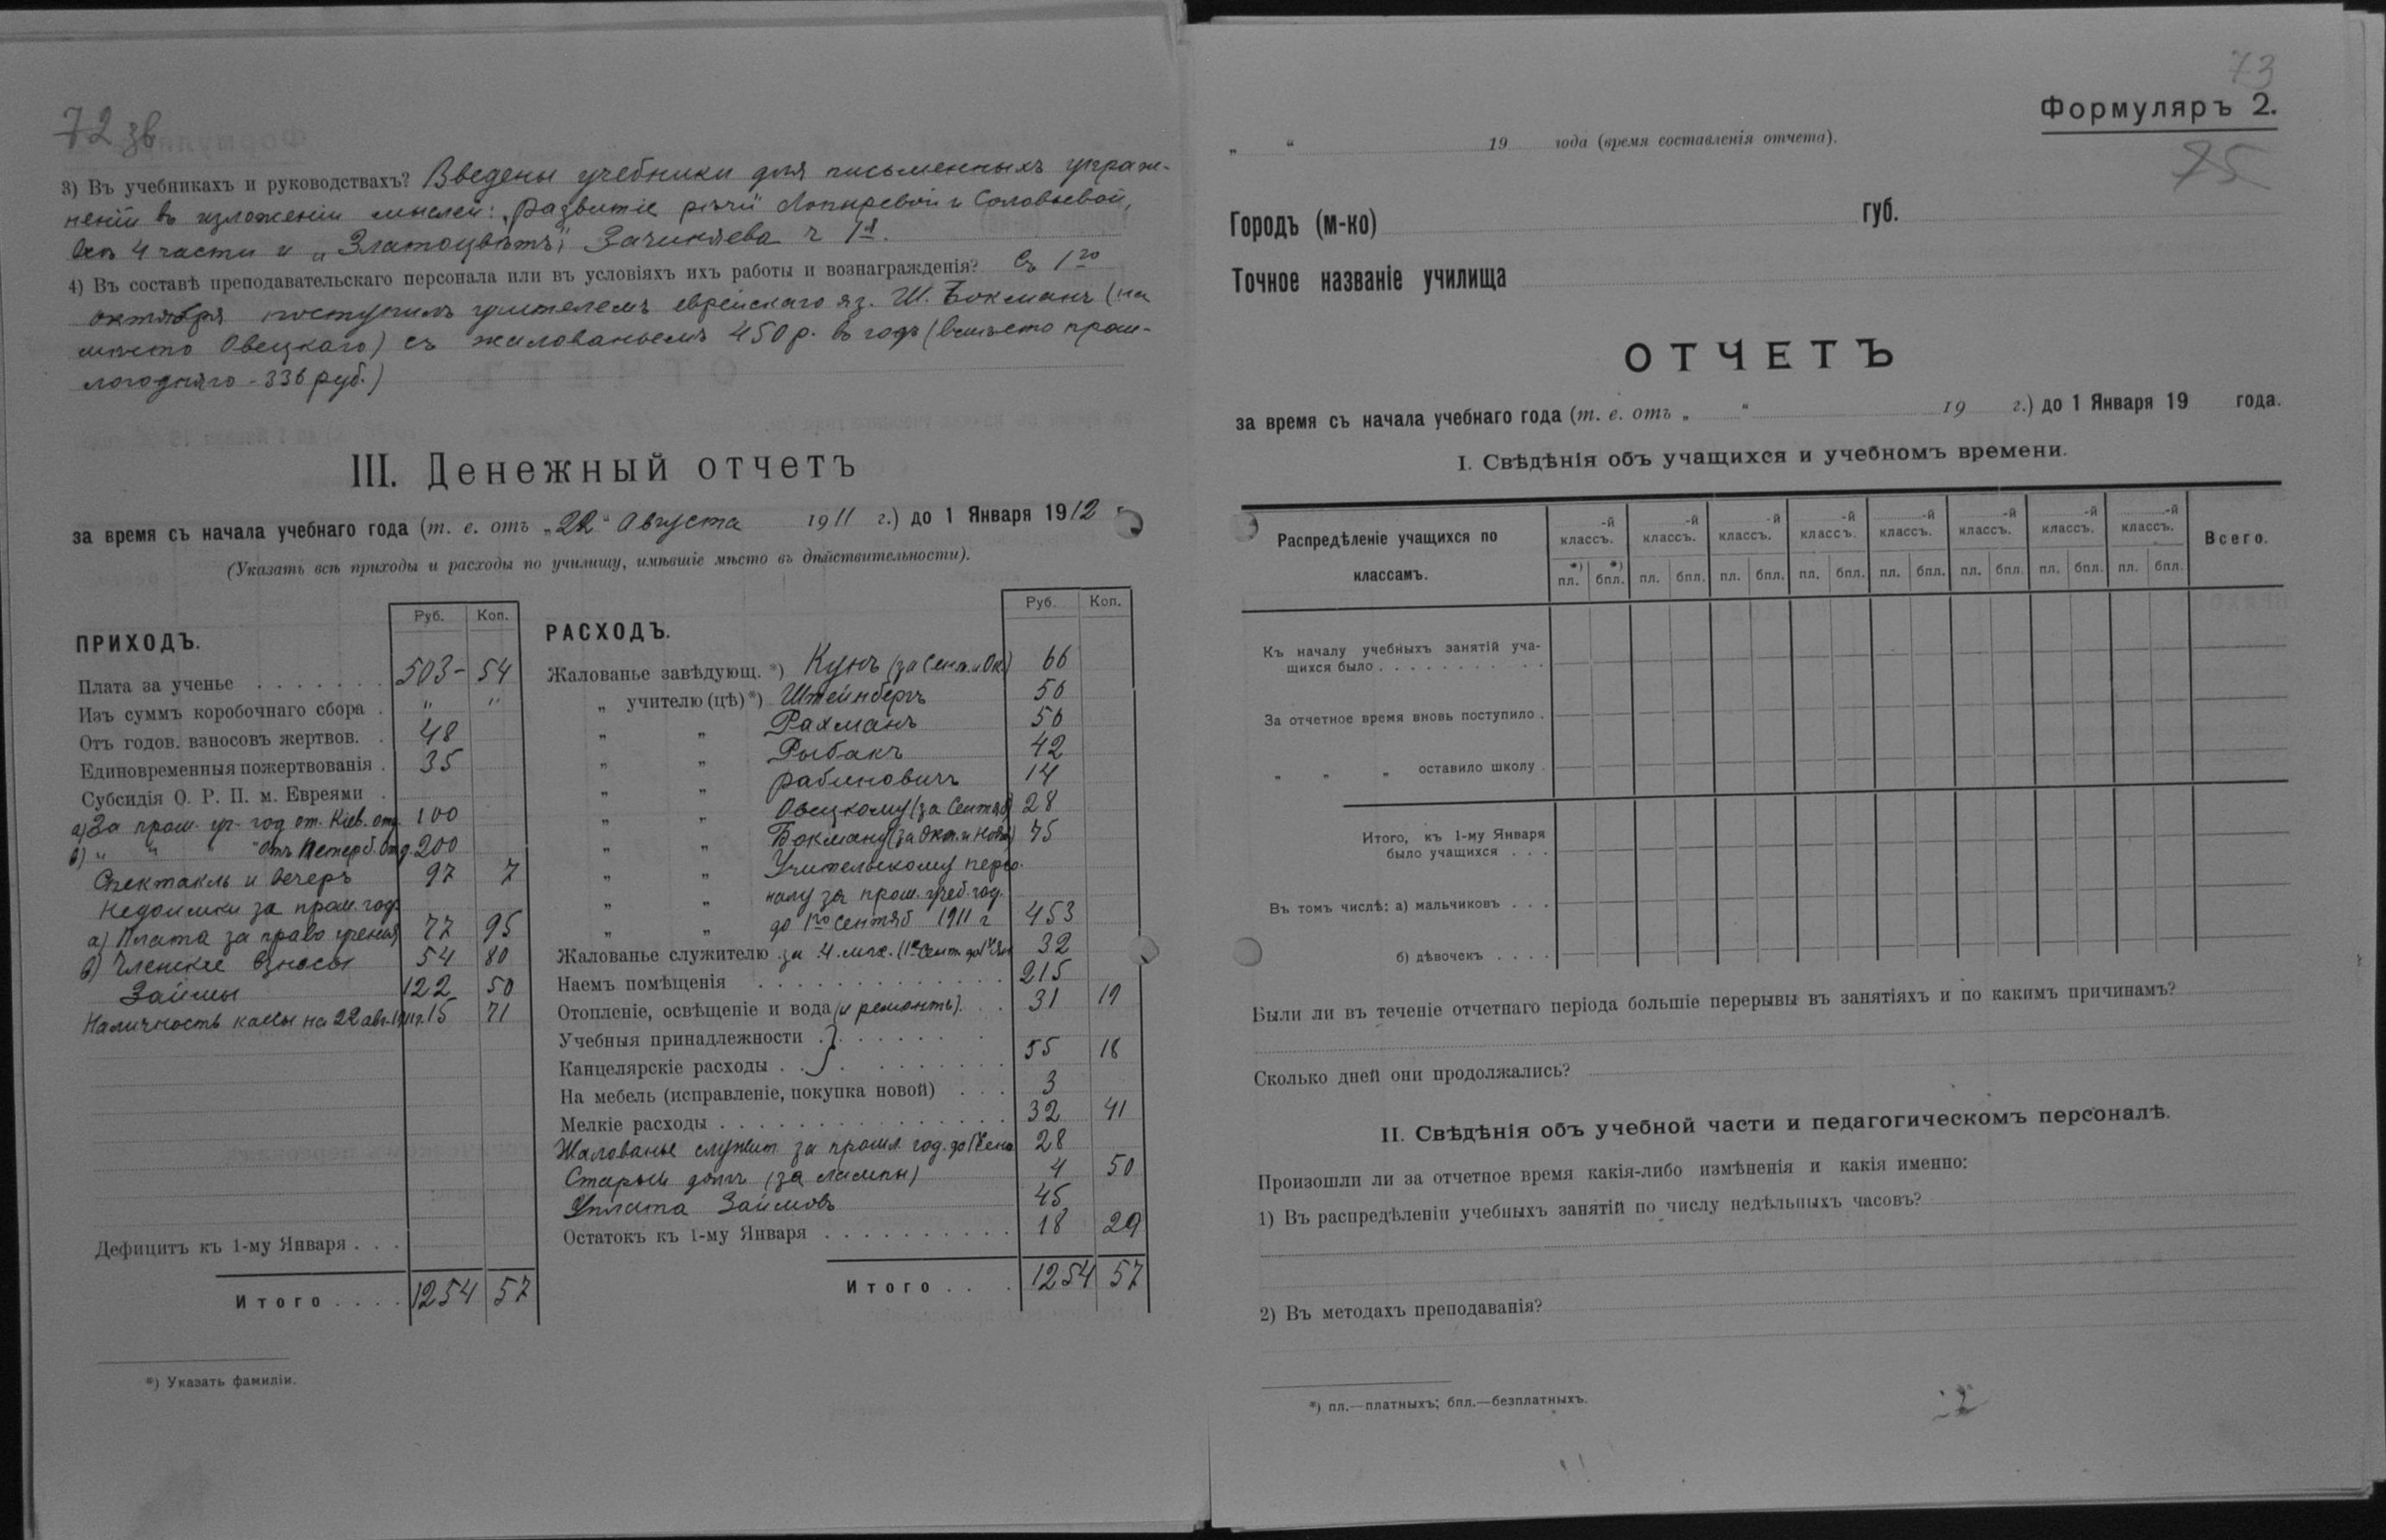 72 зв
3) Въ учебникахъ и руководствахъ? Введены учебники для письменныхъ упраж-
неній въ изложеніи мыслей: „Развитіе рѣчи" Лопыревой и Соловьевой,
4 части и „Златоцвѣтъ", Зачиняева ч 1я.
4) Въ составѣ преподавательскаго персонала или въ условіяхъ ихъ работы и вознагражденія? Съ 1го
октября поступилъ учителемъ еврейскаго яз. Ш. Бокманъ (на
мѣсто Овецкаго) съ жалованьемъ 450 р. въ годъ (вмѣсто прош-
логодняго - 336 руб.)
III. Денежный отчетъ
за время съ начала учебнаго года (т. е. отъ „22" Августа 1911 г.) до 1 Января 1912
(Указать всѣ приходы и расходы по училищу, имѣвшіе мѣсто въ дѣйствительности).
ПРИХОДЪ. Руб. Коп.
Плата за ученье . . . . . . . 503- 54
Изъ суммъ коробочнаго сбора . " "
Отъ годов. взносовъ жертвов. . 48
Единовременныя пожертвованія . 35
Субсидія О. Р. П. м. Евреями .
а) За прош. уч. год от. Кіев. отд. 100
б) " " " отъ Петерб. отд. 200
Спектакль и вечеръ 97 7
Недоимки за прош. годъ
а) Плата за право ученія 77 95
б) Членскіе взносы 54 80
Займы 122 50
Наличность кассы на 22 авг. 1911 г. 15 71
Дефицитъ къ 1-му Января . . .
Итого . . . . 1254 57
*) Указать фамиліи.
РАСХОДЪ. Руб. Коп.
Жалованье завѣдующ. *) Кунъ (за Сент. и Ок.) 66
„ учителю (цѣ) *) Штейнбергъ 56
„ „ Рахманъ 56
„ „ Рыбакъ 42
„ „ Рабиновичъ 14
„ „ Овецкому (за Сентяб) 28
„ „ Бокману (за Окт. и Нояб) 75
„ „ Учительскому персо-
„ „ налу за прош. учеб. год.
„ „ до 1го Сентяб 1911 г 453
Жалованье служителю за 4 мѣс. 32
Наемъ помѣщенія . . . . . . . . . . . . . 215
Отопленіе, освѣщеніе и вода (и ремонтъ) . . 31 19
Учебныя принадлежности . } . . . . . .
Канцелярскіе расходы . . . . . . . . . 55 18
На мебель (исправленіе, покупка новой) . . . 3
Мелкіе расходы . . . . . . . . . . . . . . . 32 41
Жалованье служит. за прошл. год. до 28
Старый долгъ (за лампы) 4 50
Уплата Займовъ 45
Остатокъ къ 1-му Января . . . . . . . . . . 18 29
Итого . . . 1254 57
73
Формуляръ 2.
75
„ " 19 года (время составленія отчета).
Городъ (м-ко) губ.
Точное названіе училища
ОТЧЕТЪ
за время съ начала учебнаго года (т. е. отъ „ " 19 г.) до 1 Января 19 года.
I. Свѣдѣнія объ учащихся и учебномъ времени.
Распредѣленіе учащихся по классамъ.
-й классъ. -й классъ. -й классъ. -й классъ. -й классъ. -й классъ. -й классъ. -й классъ. Всего.
*) пл. *) бпл. пл. бпл. пл. бпл. пл. бпл. пл. бпл. пл. бпл. пл. бпл. пл. бпл.
Къ началу учебныхъ занятій уча-
щихся было . . . . . . . . . . .
За отчетное время вновь поступило .
„ „ „ оставило школу .
Итого, къ 1-му Января
было учащихся . . .
Въ томъ числѣ: а) мальчиковъ . . .
б) дѣвочекъ . . . .
Были ли въ теченіе отчетнаго періода большіе перерывы въ занятіяхъ и по какимъ причинамъ?
Сколько дней они продолжались?
II. Свѣдѣнія объ учебной части и педагогическомъ персоналѣ.
Произошли ли за отчетное время какія-либо измѣненія и какія именно:
1) Въ распредѣленіи учебныхъ занятій по числу недѣльныхъ часовъ?
2) Въ методахъ преподаванія?
*) пл.—платныхъ; бпл.—безплатныхъ.